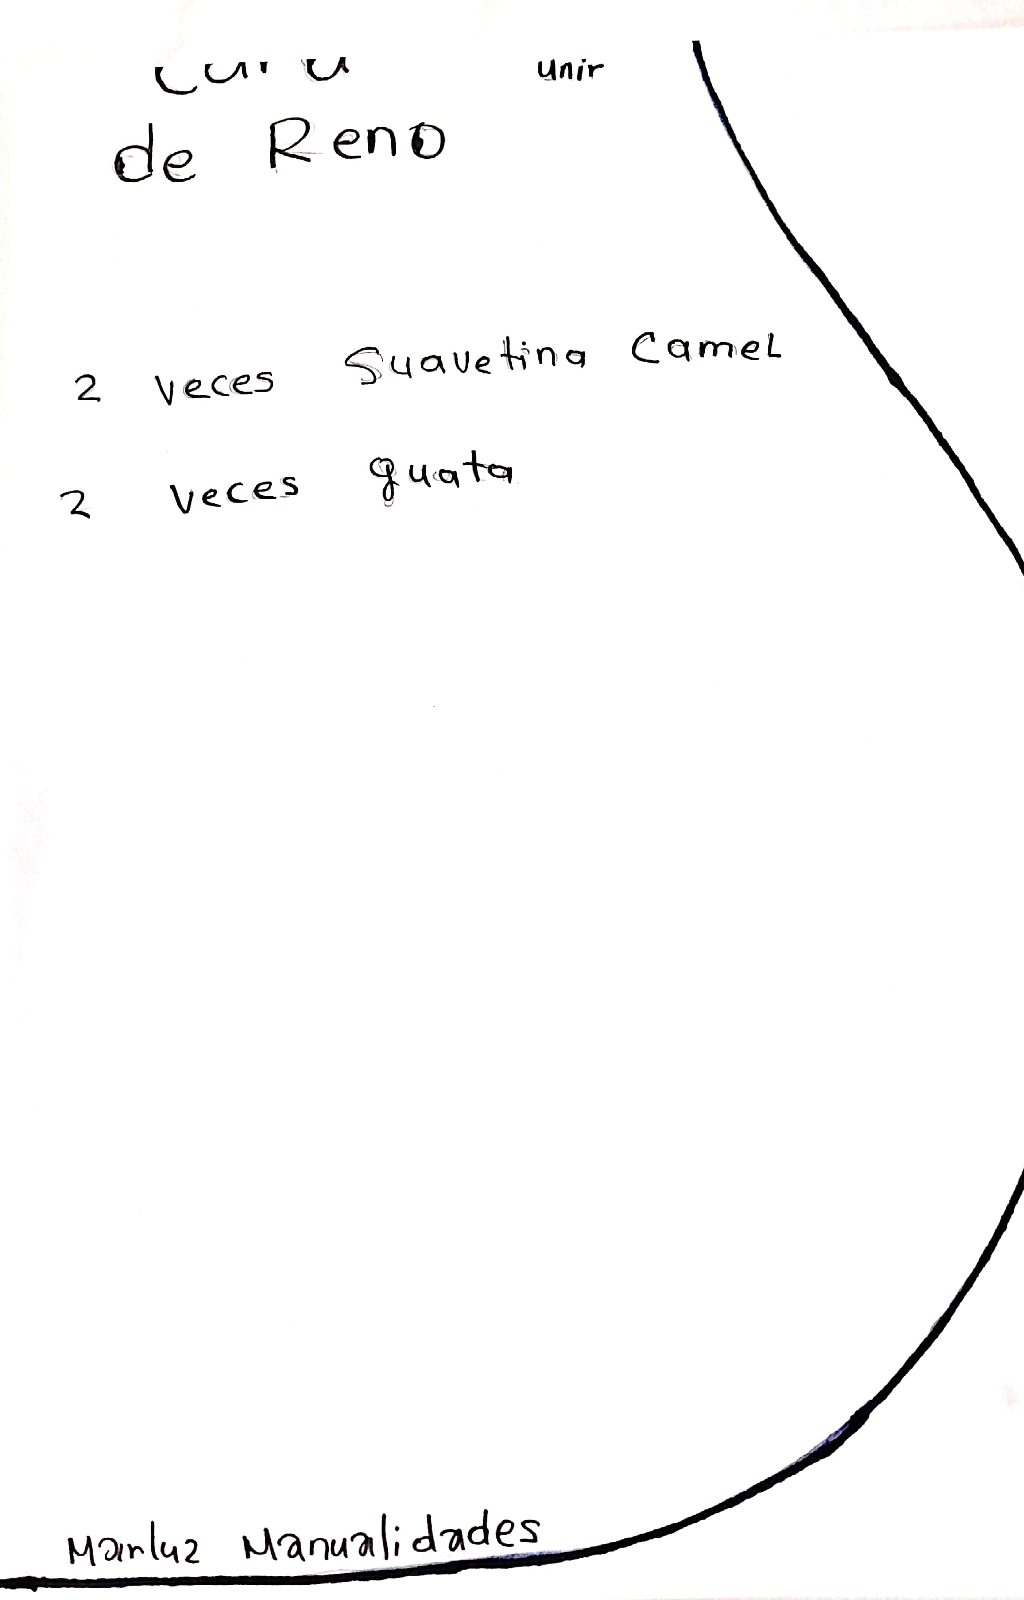 unir
de Reno
2 veces Suavetina Camel
2 veces guata
Marluz Manualidades